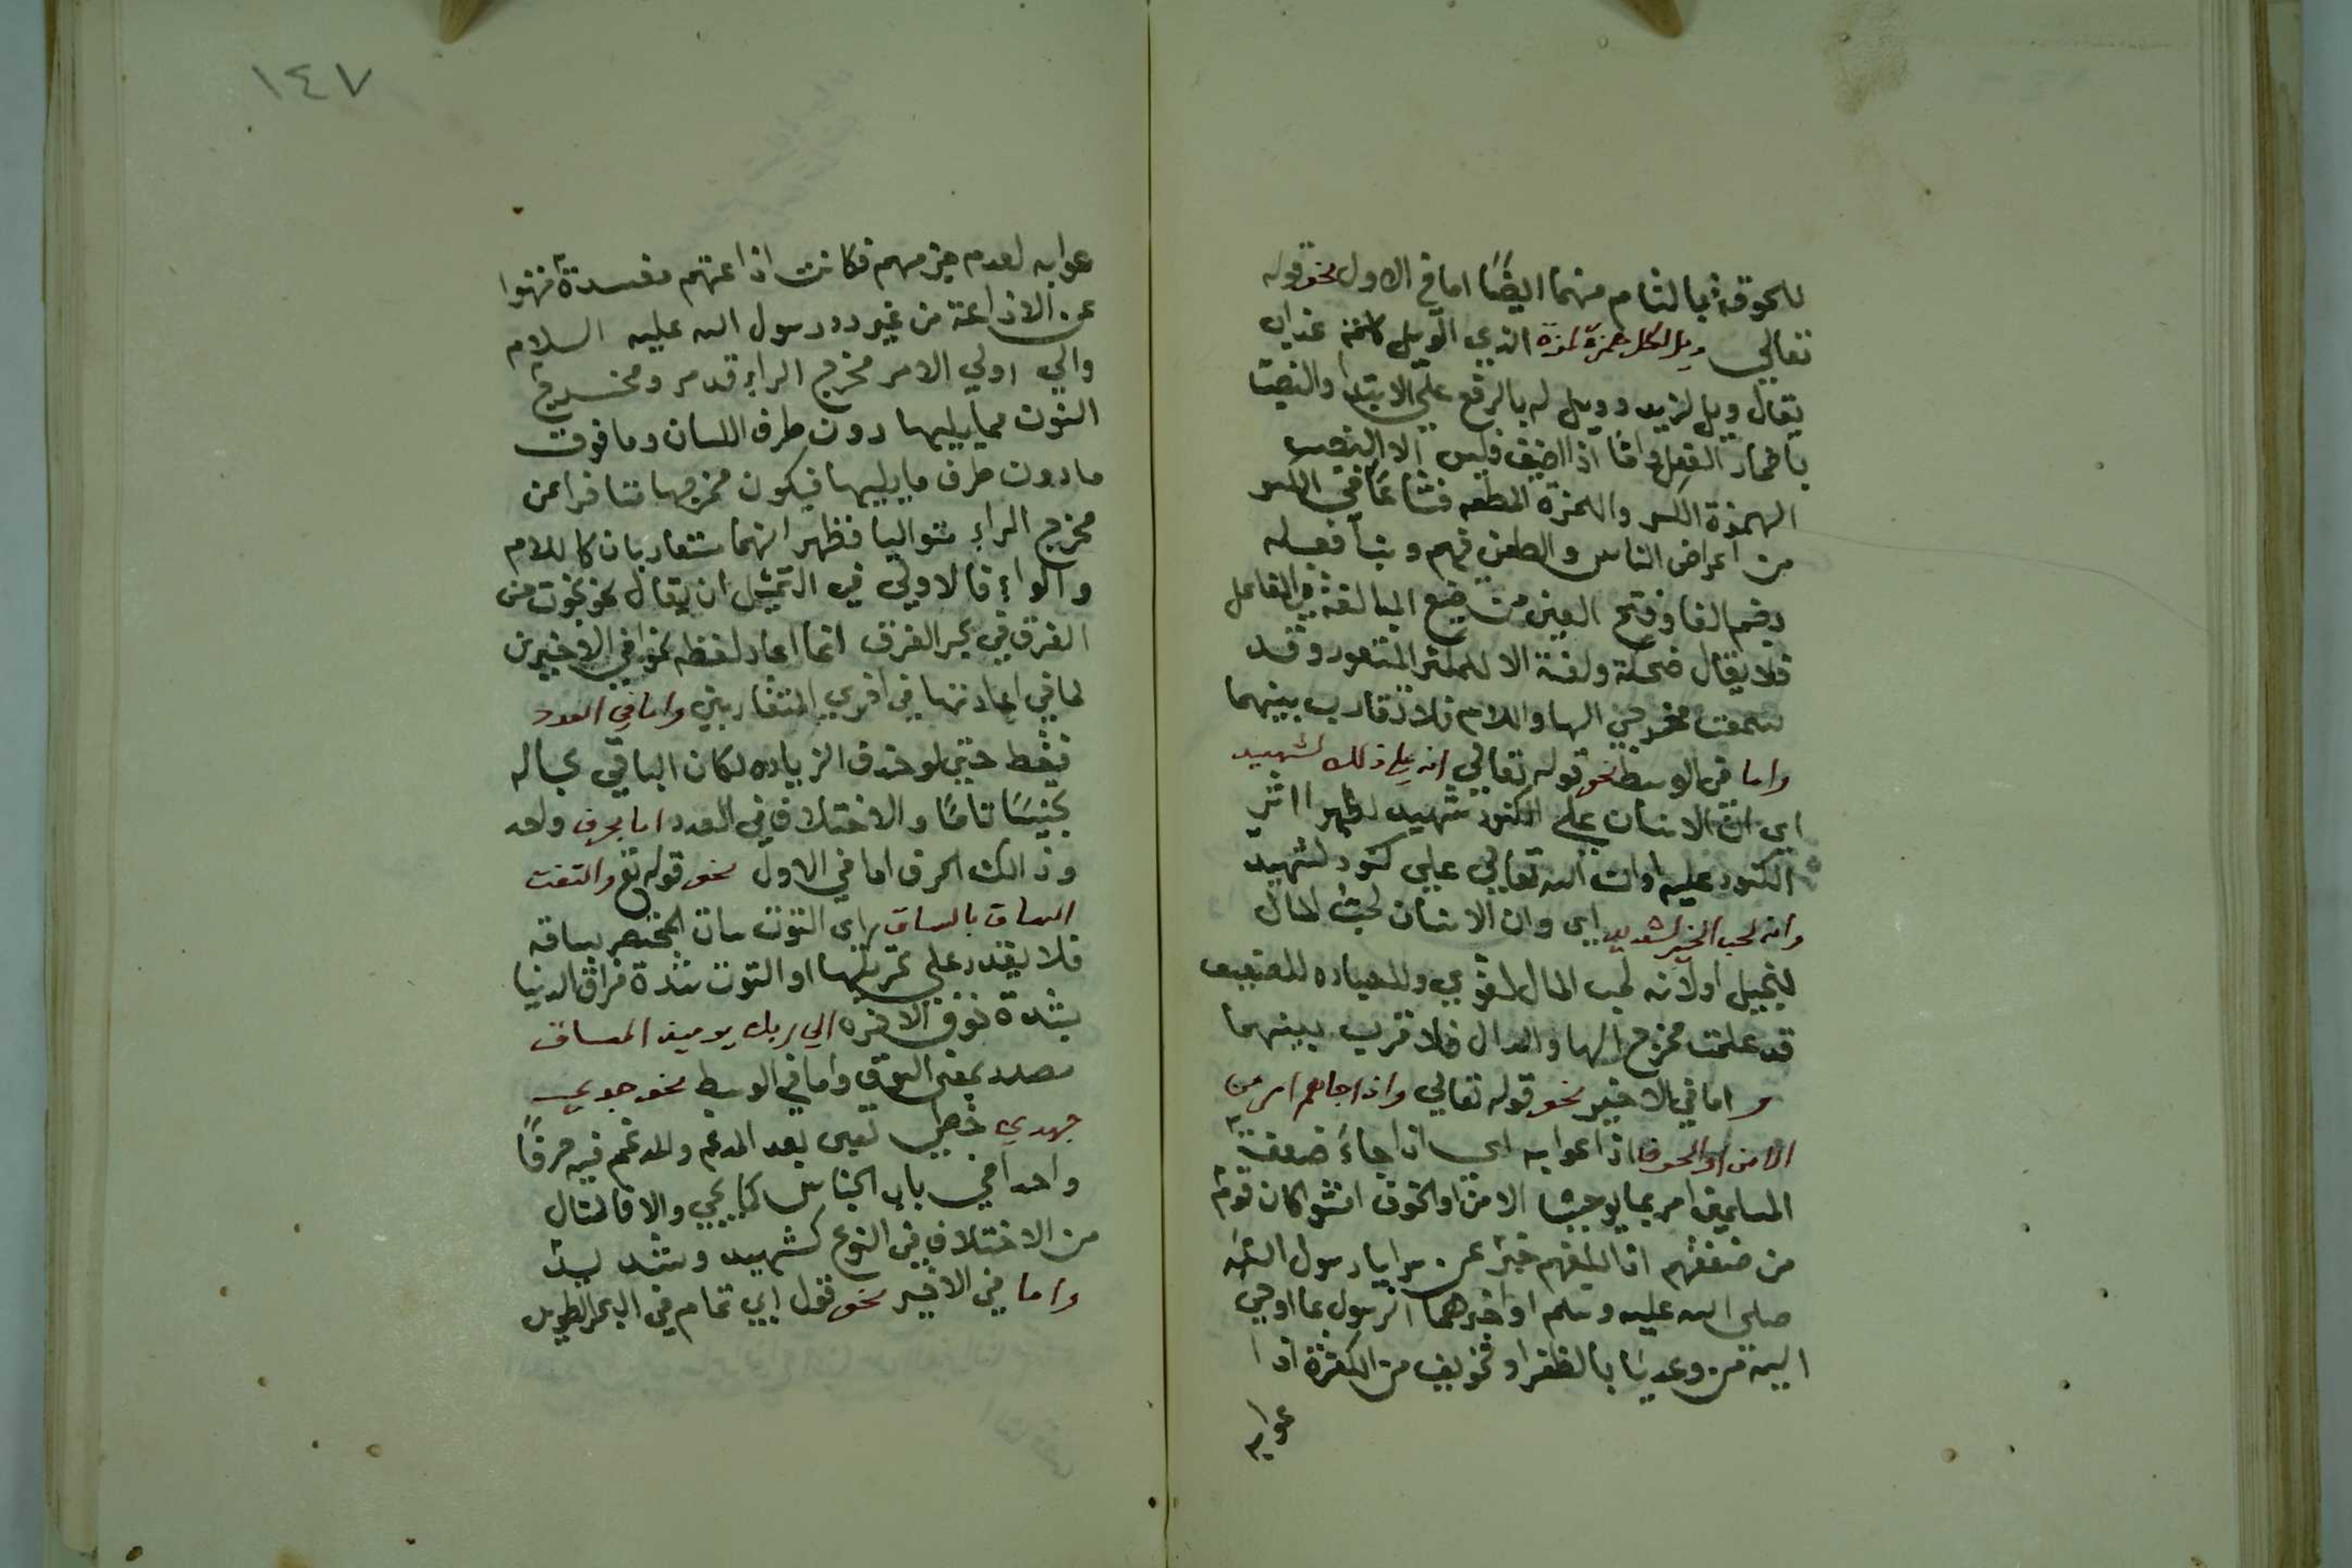 للحوقه بالتام منهما ايضًا اما في الاول نحو قوله
تعالي ويل لكل همزة لمزة الذي الويل كلمة عذاب
يقال ويل لزيد وويل له بالرفع علي الابتدا والنصب
باضمار الفعل واما اذا اضيف فليس الا النصب
الهمزة الكسر واللمزة الطعن فشاعا في الكسر
من اعراض الناس والطعن فيهم وبنا فعله
بضم الفا وفتح العين من صيغ المبالغة في الفاعل
فلا يقال ضحكة ولعنة الا للمكثر المتعود وقد
سمعت مخرجي الها واللام فلا تقارب بينهما
واما في الوسط نحو قوله تعالي انه علي ذلك لشهيد
اي ان الانسان علي الكنود شهيد لظهر اثر
الكنود عليه او ان الله تعالي علي كنود لشهيد
وانه لحب الخير لشديد اي وان الانسان لحب المال
لبخيل او لانه لحب المال لقوي وللعباده لضعيف
قد علمت مخرج الها والدال فلا قرب بينهما
واما في الاخير نحو قوله تعالي واذا جاهم امر من
الامن او الخوف اذاعوا به اي اذا جاء ضعفة
المسلمين امر بما يوجب الامن او الخوف افشوا كان قوم
من ضعفهم اذا بلغهم خبر عن سرايا رسول الله
صلي الله عليه وسلم او اخبرهم الرسول بما اوحي
اليه من وعد بالظفر او تخويف من الكفرة اذا
عوا به
١٤٧
عوا به لعدم حزمهم فكانت اذاعتهم مفسدة فنهوا
عن الاذاعة من غير رد رسول الله عليه السلام
والي اولي الامر مخرج الراء قد مر ومخرج
النون مما يليها دون طرف اللسان وما فوق
ما دون طرف ما يليها فيكون مخرجها متاخرا عن
مخرج الراء متواليا فظهر انهما متقاربان كاللام
والراء فالاولي في التمثيل ان يقال نحو نجوت من
الغرق في بحر الفرق انما اعاد لفظ نحو في الاخيرين
لما في اعادتها في اخري المتقاربين واما في العدد
فقط حتي لو حذف الزياده لكان الباقي بحاله
تجنيسًا تامًا والاختلاف في العدد اما بحرف واحد
وذالك الحرف اما في الاول نحو قوله تع والتفت
الساق بالساق اي التوت ساق المحتضر بساقه
فلا يقدر علي تحريكها او التوت شدة فراق الدنيا
بشدة خوف الاخره الي ربك يوميذ المساق
مصدر بمعني السوق واما في الوسط نحو جدي
جهدي حظي يعني يعد المدغم والمدغم فيه حرفًا
واحدا في باب الجناس كما يجي والا فالمثال
من الاختلاف في النوع كشهيد وشديد
واما في الاخير نحو قول ابي تمام في البحر الطويل